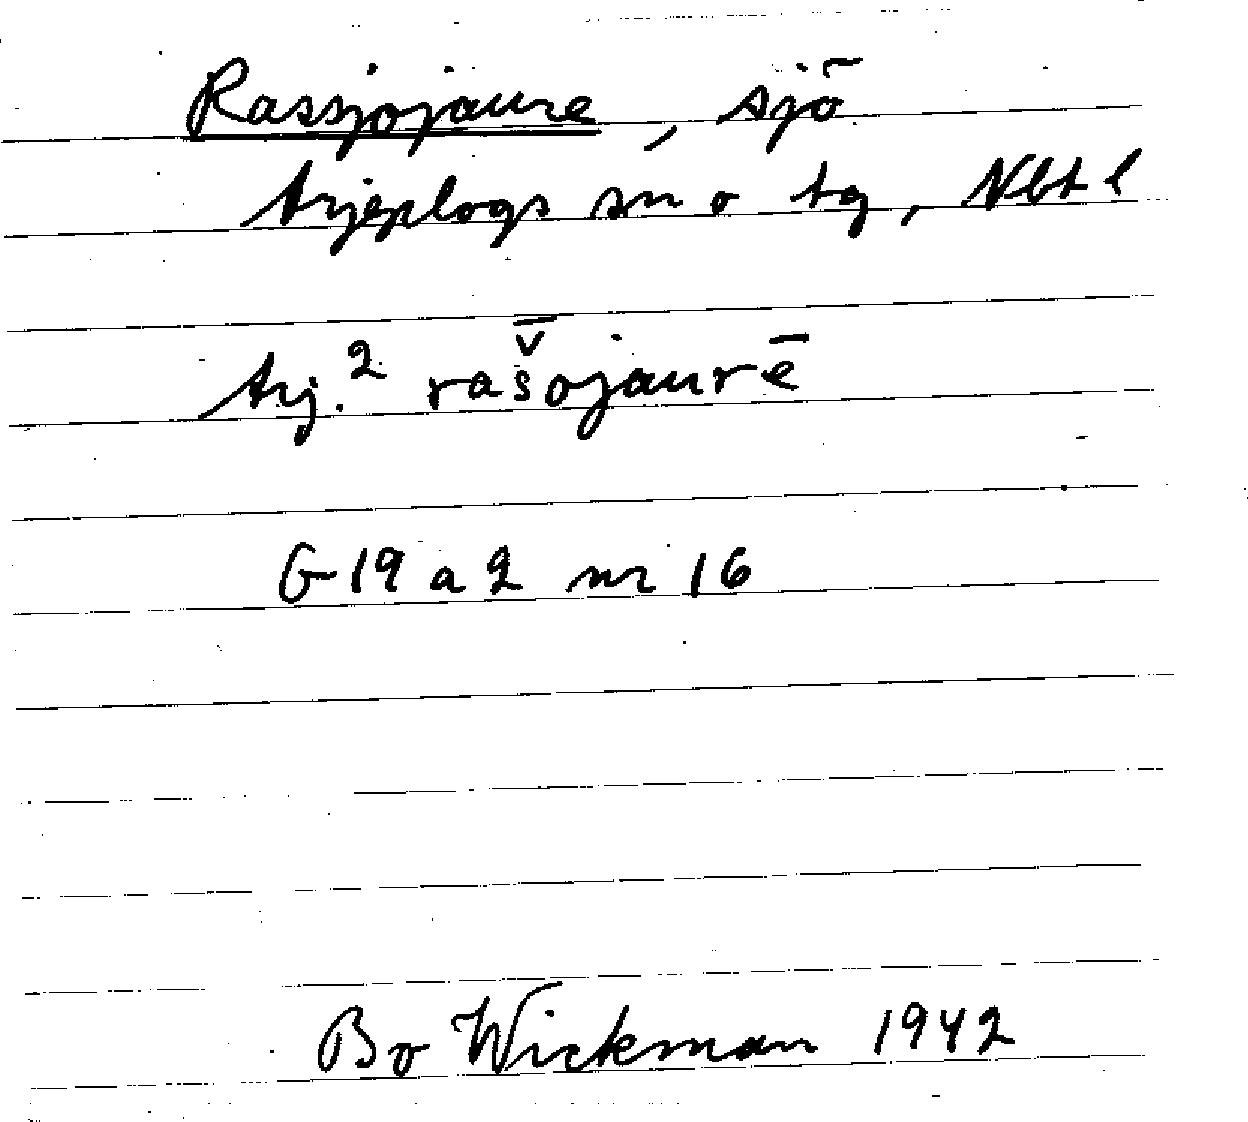 Rassjojaure, sjö
Arjeplogs sn o tg, Nbt l
Arj.² raš̄ojaurē
G 19 a 2 nr 16
Bo Wickman 1942